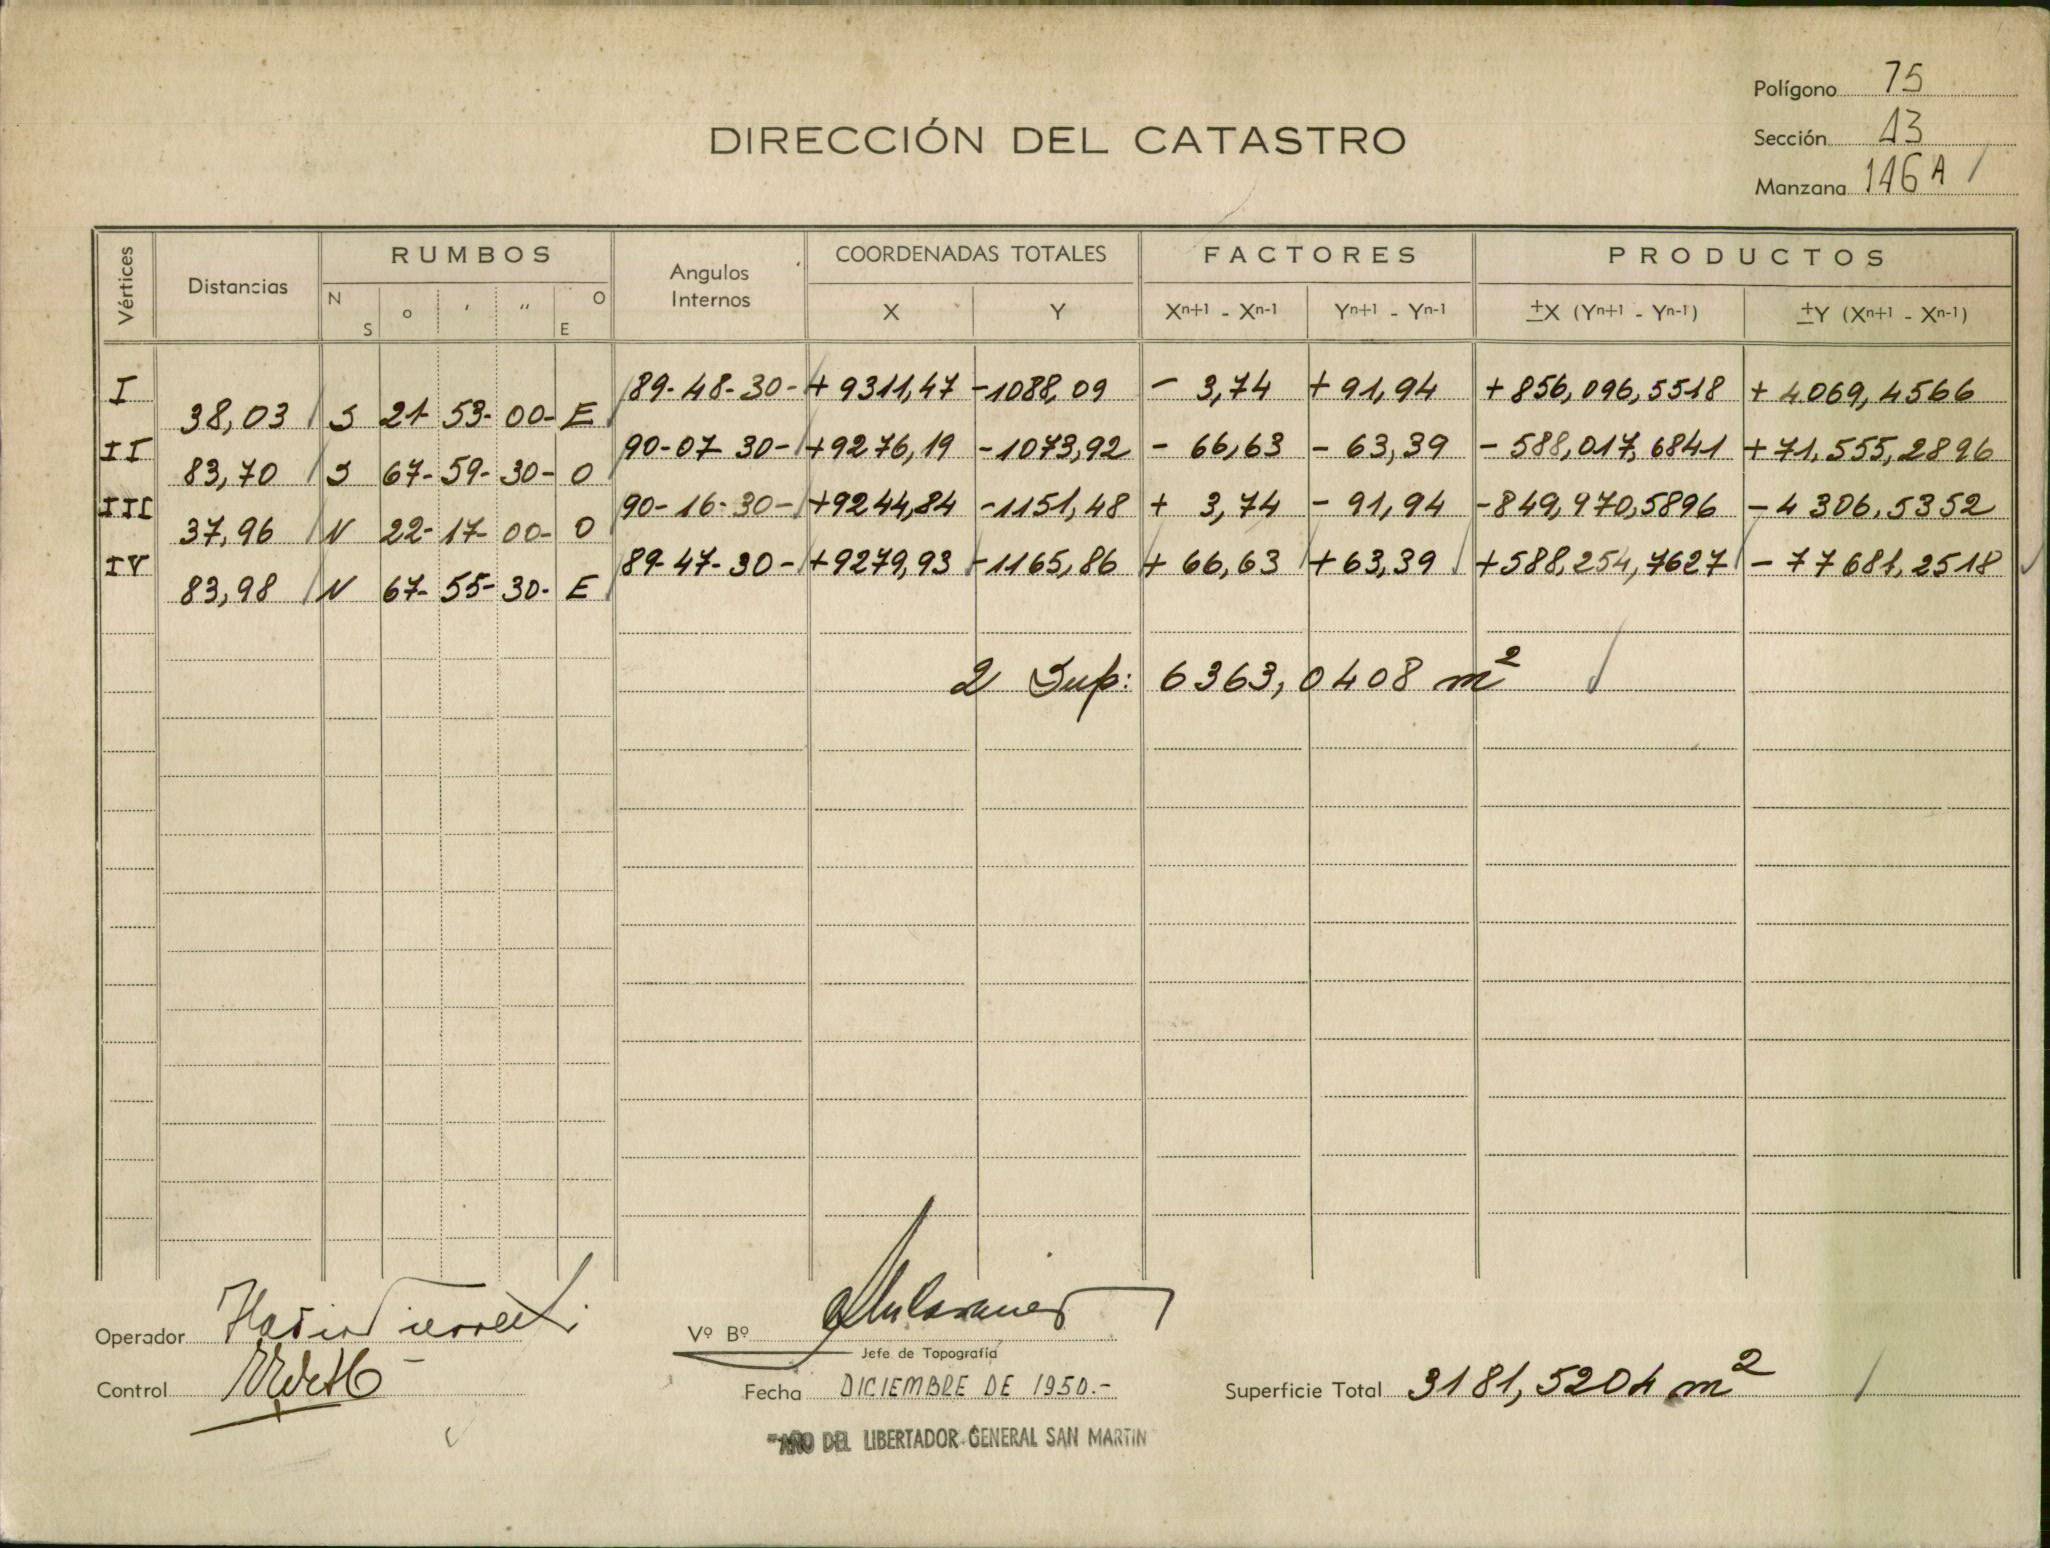 Polígono 75
DIRECCIÓN DEL CATASTRO
Sección 13
Manzana 146 A
Vértices
Distancias
RUMBOS
N S
o ' "
O E
Angulos Internos
COORDENADAS TOTALES
X Y
FACTORES
Xn+1 - Xn-1 Yn+1 - Yn-1
PRODUCTOS
±X (Yn+1 - Yn-1) ±Y (Xn+1 - Xn-1)
I 89-48-30- +9311,47 -1088,09 - 3,74 +91,94 +856,096,5518 +4069,4566
38,03 S 21- 53- 00- E
II 90-07 30- +9276,19 -1073,92 - 66,63 - 63,39 - 588,017,6841 +71,555,2896
83,70 S 67- 59- 30- O
III 90-16-30- +9244,84 -1151,48 + 3,74 - 91,94 -849,970,5896 -4 306,5352
37,96 N 22- 17- 00- O
IV 89-47-30- +9279,93 -1165,86 + 66,63 +63,39 +588,254,7627 - 77681,2518
83,98 N 67- 55- 30- E
2 Sup: 6363,0408 m²
Operador
Vº Bº
Jefe de Topografía
Control
Fecha DICIEMBRE DE 1950.-
Superficie Total 3181,5204 m²
"AÑO DEL LIBERTADOR GENERAL SAN MARTIN